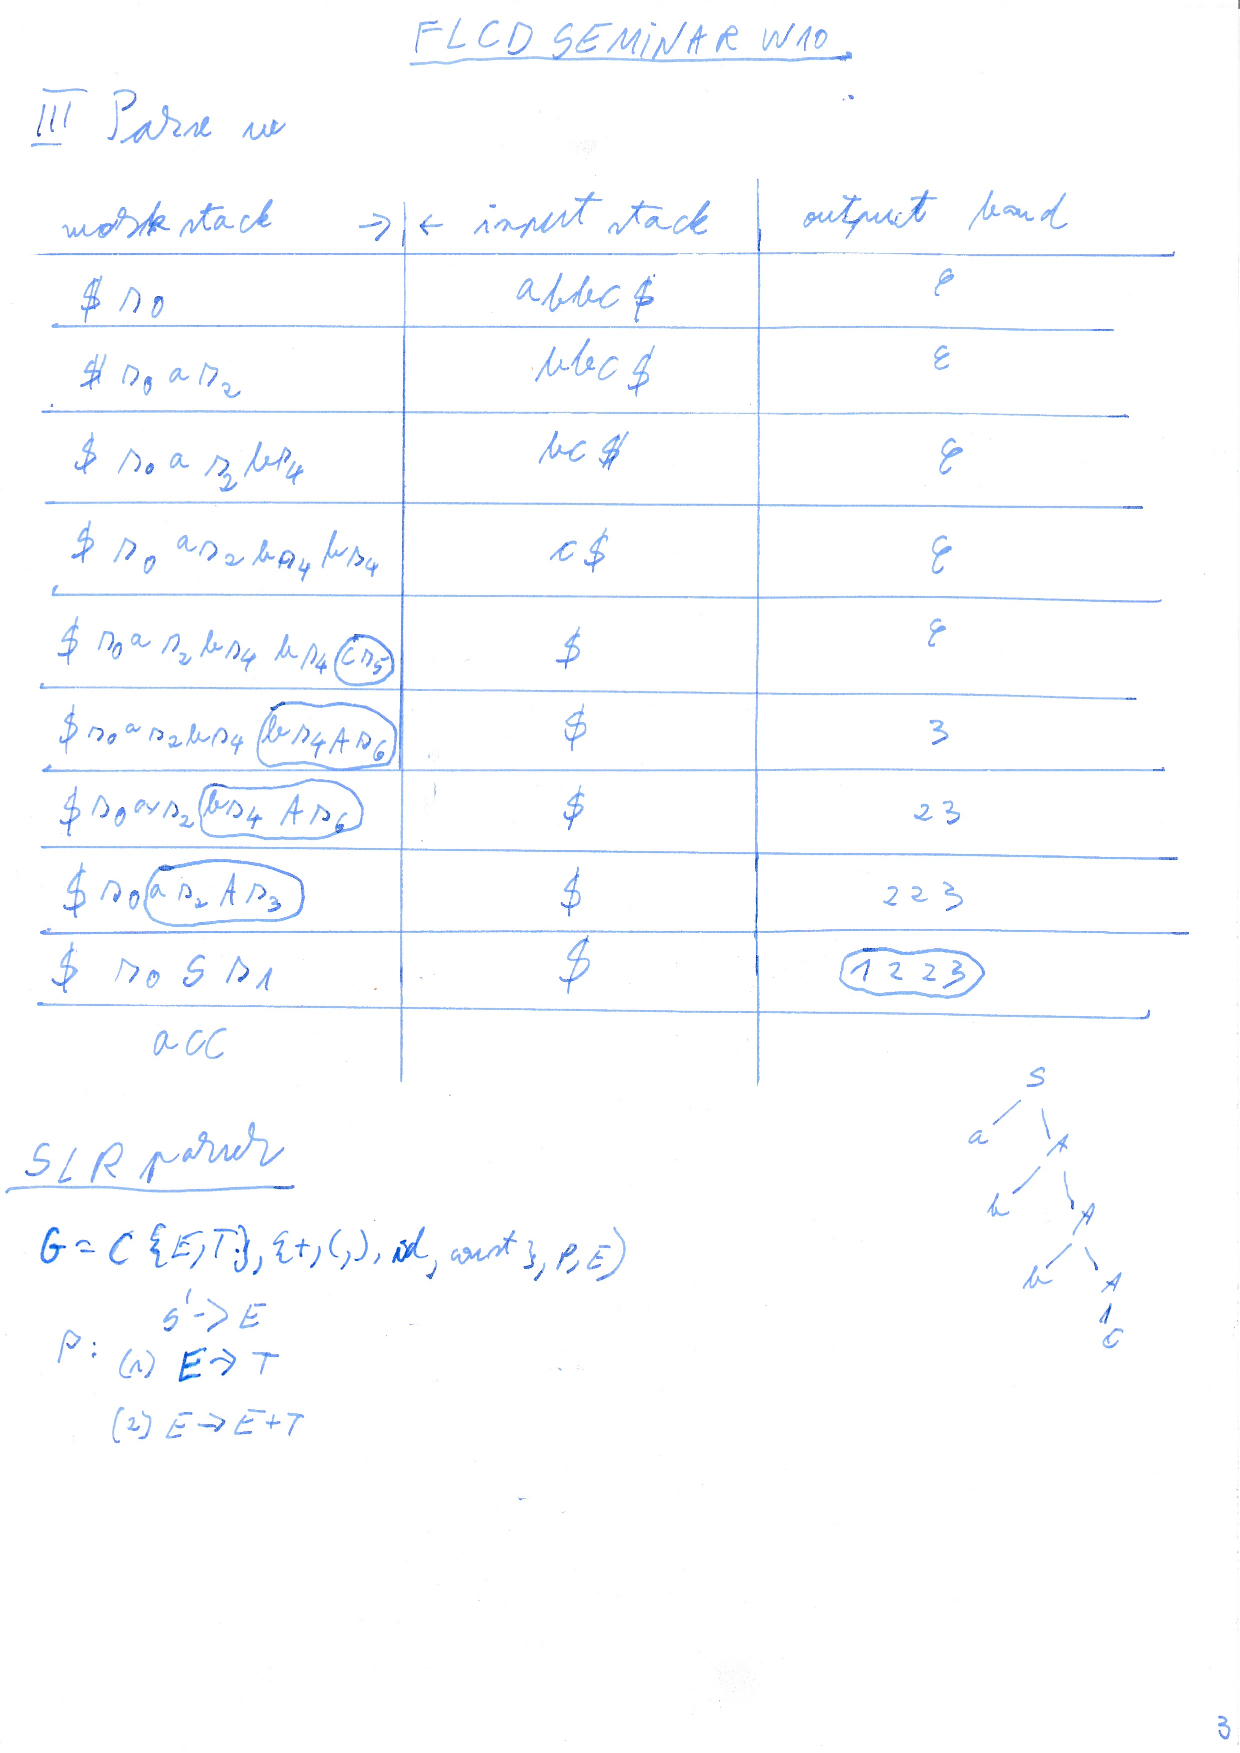 FLCD SEMINAR W10
III Parse w
work stack → | ← input stack | output band
$ s0 | abbc $ | ε
$ s0 a s2 | bbc $ | ε
$ s0 a s2 b s4 | bc $ | ε
$ s0 a s2 b s4 b s4 | c $ | ε
$ s0 a s2 b s4 b s4 c s5 | $ | ε
$ s0 a s2 b s4 b s4 A s6 | $ | 3
$ s0 a s2 b s4 A s6 | $ | 23
$ s0 a s2 A s3 | $ | 223
$ s0 S s1 | $ | 1223
acc
S
a A
b A
b A
c
SLR parser
G = ( {E, T}, {+, (, ), id, const}, P, E)
S' -> E
P: (1) E -> T
(2) E -> E+T
3